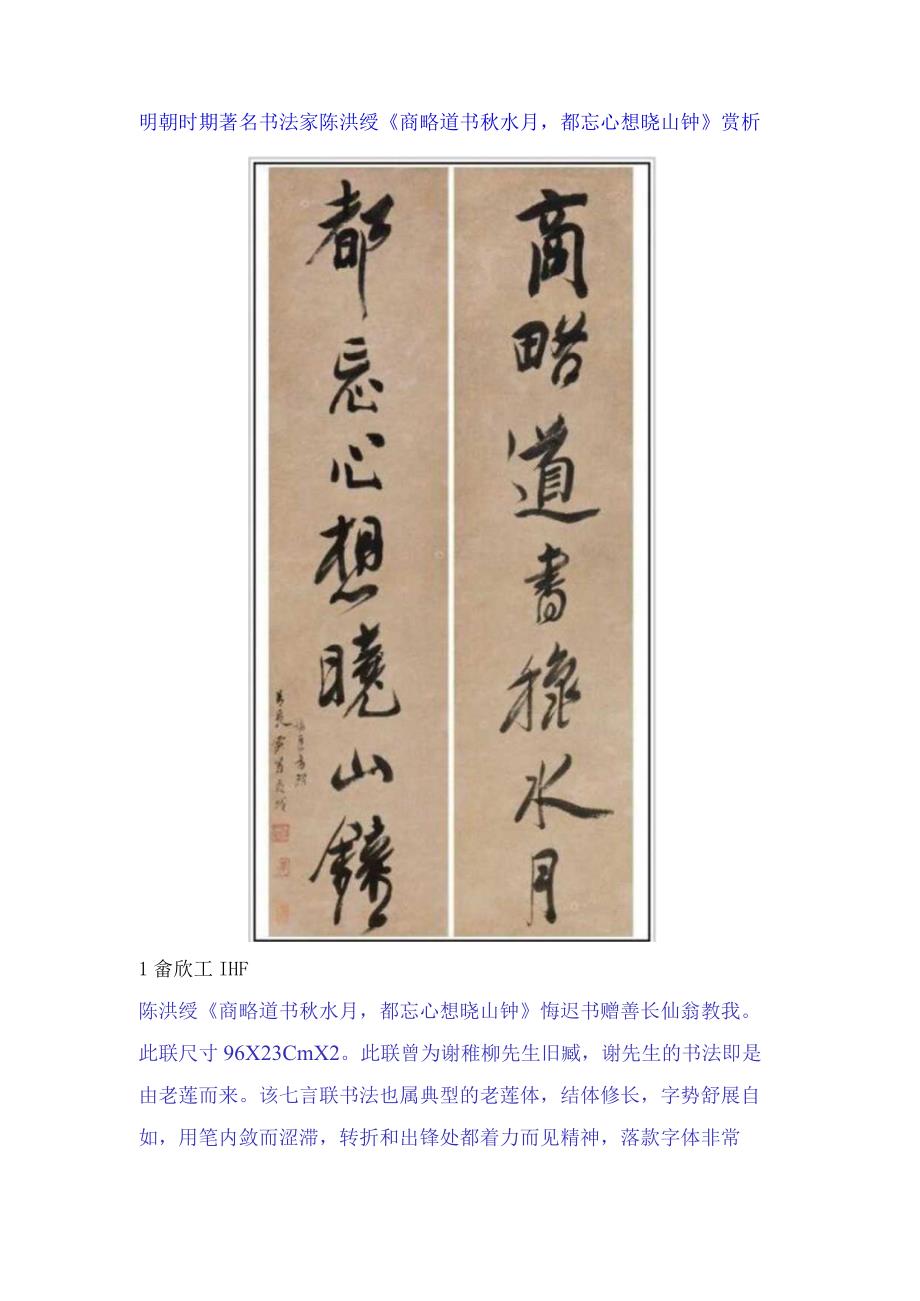 明朝时期著名书法家陈洪绶《商略道书秋水月，都忘心想晓山钟》赏析
商略道書穐水月
都忘心想曉山鐘
1 畲欣工 IHF
陈洪绶《商略道书秋水月，都忘心想晓山钟》悔迟书赠善长仙翁教我。
此联尺寸 96X23CmX2。此联曾为谢稚柳先生旧臧，谢先生的书法即是
由老莲而来。该七言联书法也属典型的老莲体，结体修长，字势舒展自
如，用笔内敛而涩滞，转折和出锋处都着力而见精神，落款字体非常